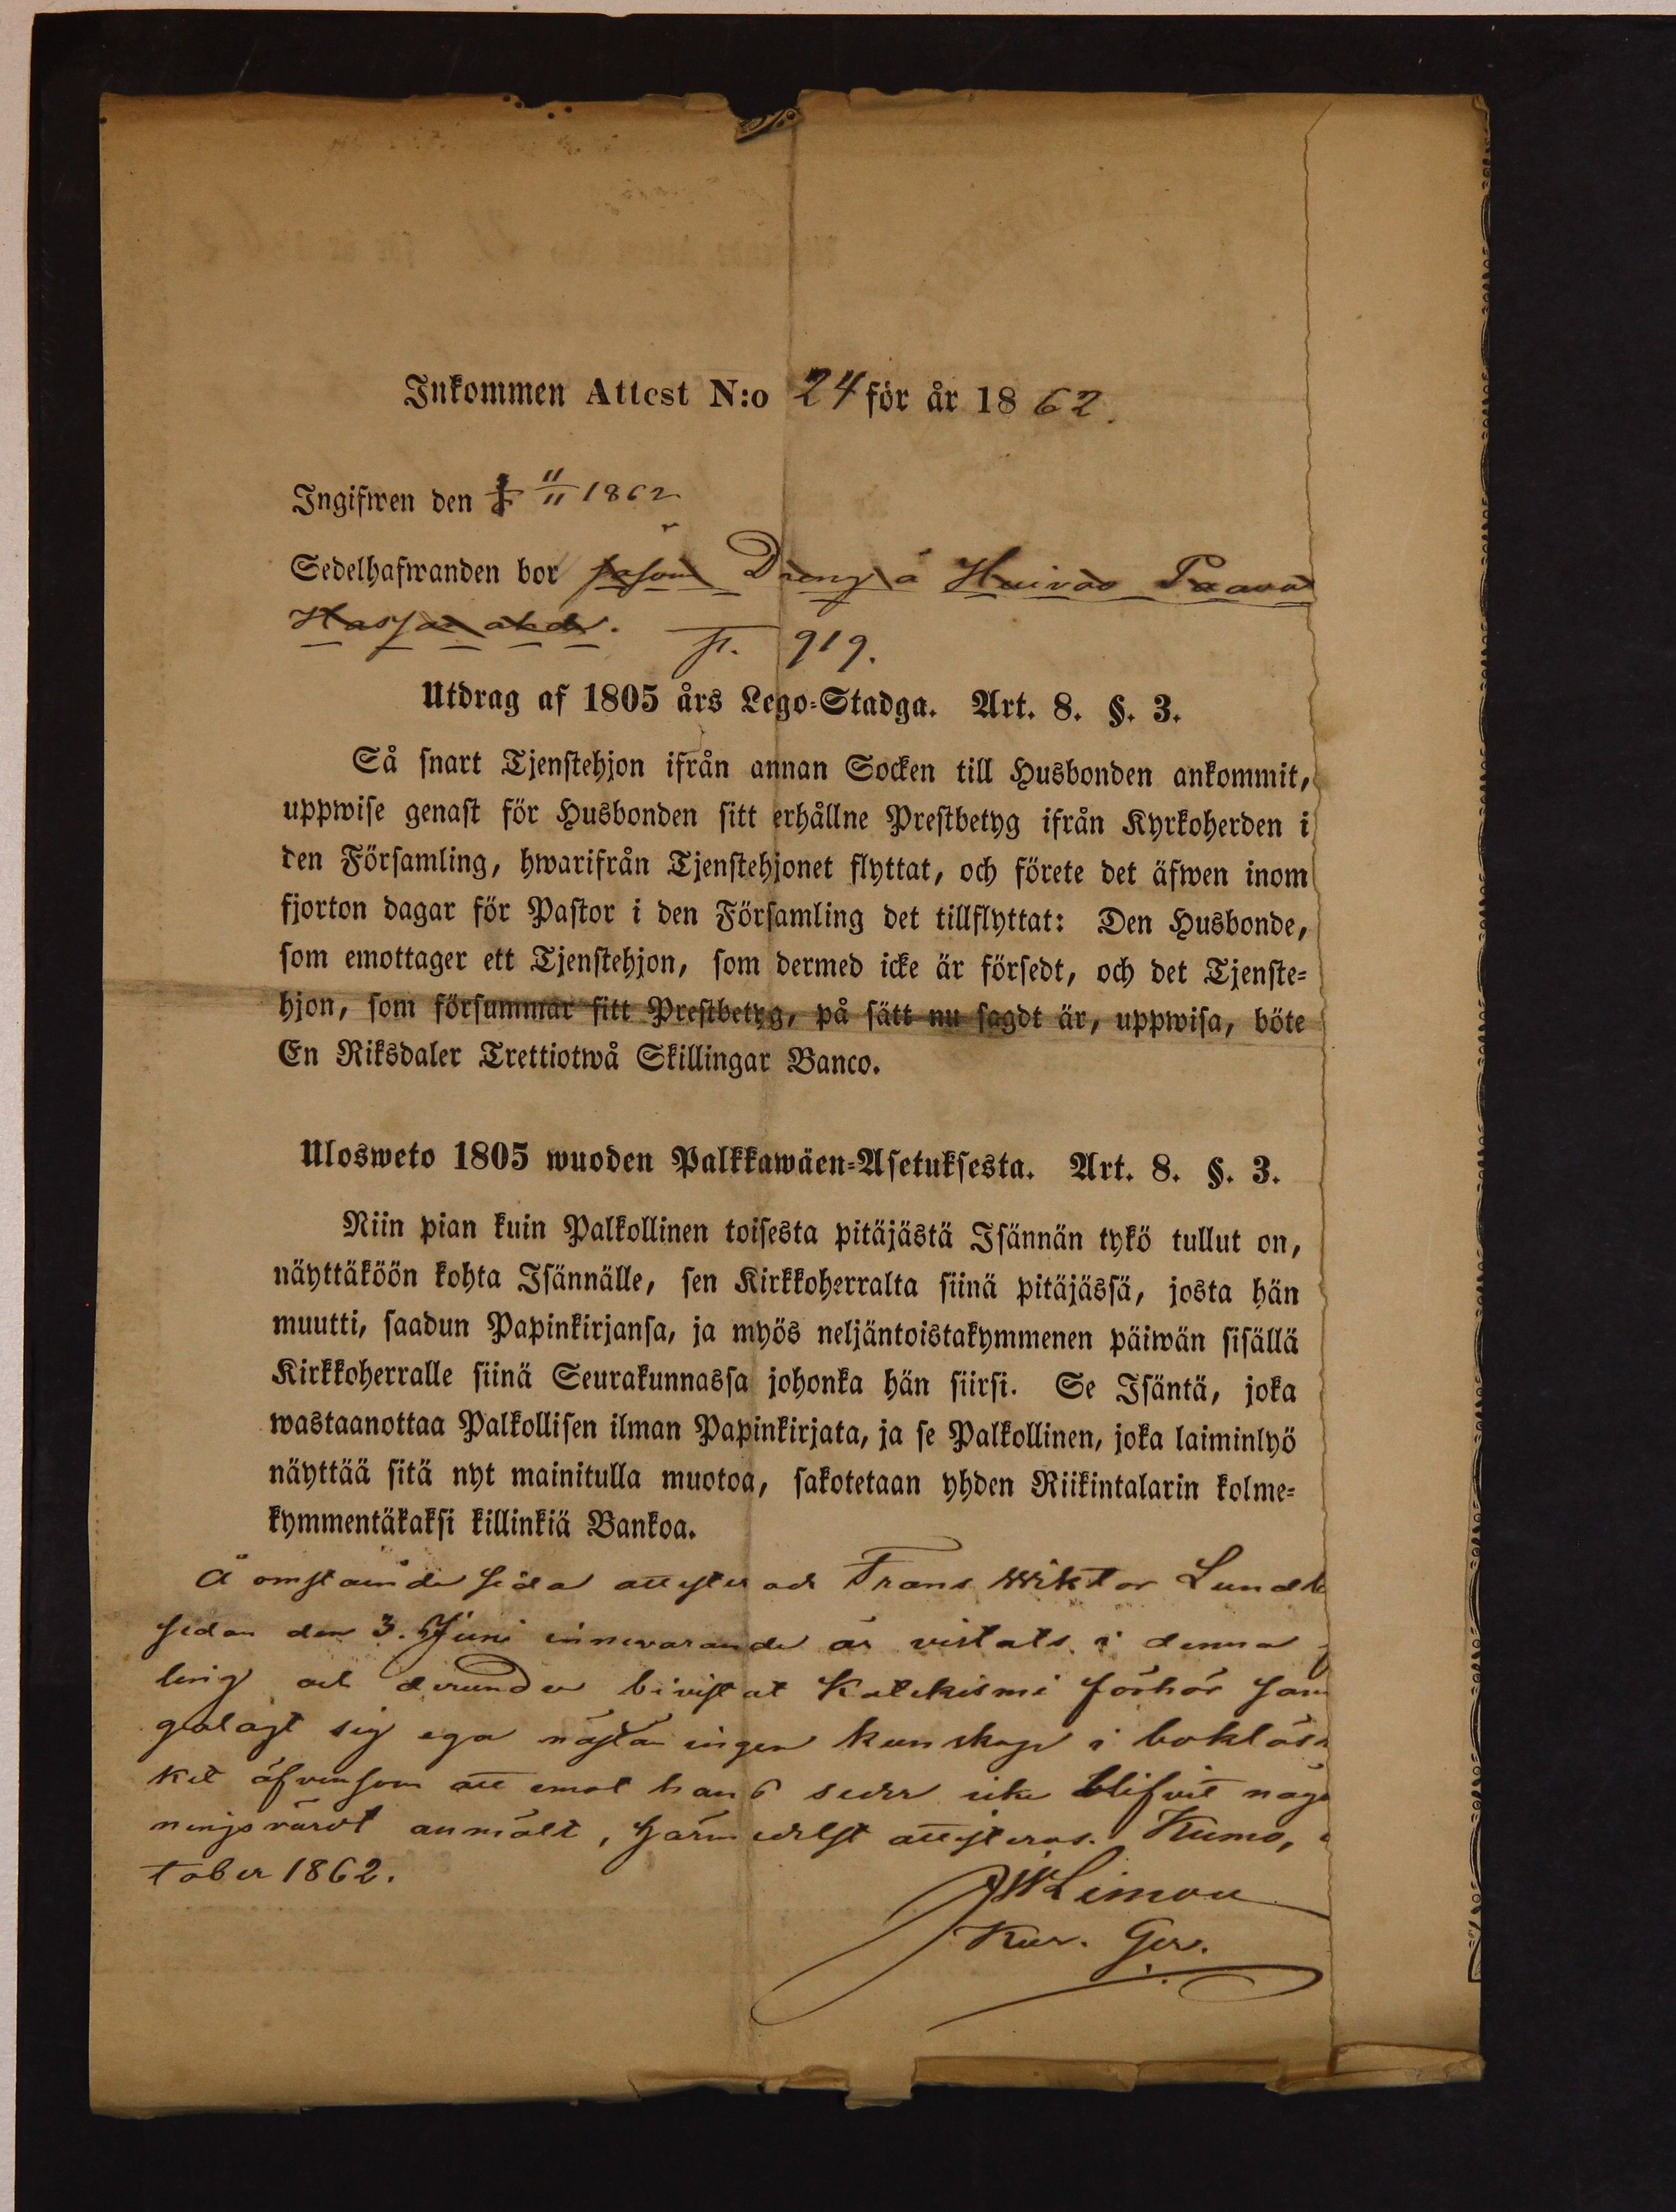 Inkommen Attest N:o 24 för år 1862.
Ingifwen den 11/11 1862
Sedelhafwanden bor såsom Dräng å Huivas Paavo
F. 919.
Utdrag af 1805 års Lego-Stadga. Art. 8. §. 3.
Så snart Tjenstehjon ifrån annan Socken till Husbonden ankommit,
uppwise genast för Husbonden sitt erhållne Prestbetyg ifrån Kyrkoherden i
den Församling, hwarifrån Tjenstehjonet flyttat, och förete det äfwen inom
fjorton dagar för Pastor i den Församling det tillflyttat: Den Husbonde,
som emottager ett Tjenstehjon, som dermed icke är försedt, och det Tjenste-
hjon, som försummar sitt Prestbetyg, på sätt nu sagdt är, uppwisa, böte
En Riksdaler Trettiotwå Skillingar Banco.
Ulosweto 1805 wuoden Palkkawäen-Asetuksesta. Art. 8. §. 3.
Niin pian kuin Palkollinen toisesta pitäjästä Isännän tykö tullut on,
näyttäköön kohta Isännälle, sen Kirkkoherralta siinä pitäjässä, josta hän
muutti, saadun Papinkirjansa, ja myös neljäntoistakymmenen päiwän sisällä
Kirkkoherralle siinä Seurakunnassa johonka hän siirsi. Se Isäntä, joka
wastaanottaa Palkollisen ilman Papinkirjata, ja se Palkollinen, joka laiminlyö
näyttää sitä nyt mainitulla muotoa, sakotetaan yhden Riikintalarin kolme-
kymmentäkaksi killinkiä Bankoa.
Å omstående sida Frans Wiktor Lund
sedan den 3. Juni innevarande år vistats i denna
ling och derunder bivistat Katekismi förhör sam
galagt sig ega nästan ingen kunskap i bokläsn
ket äfvensom att emot hans seder icke blifvit någo
ningsvärdt anmält, härmedelst attesteras. Kumo,
tober 1862.
Limon